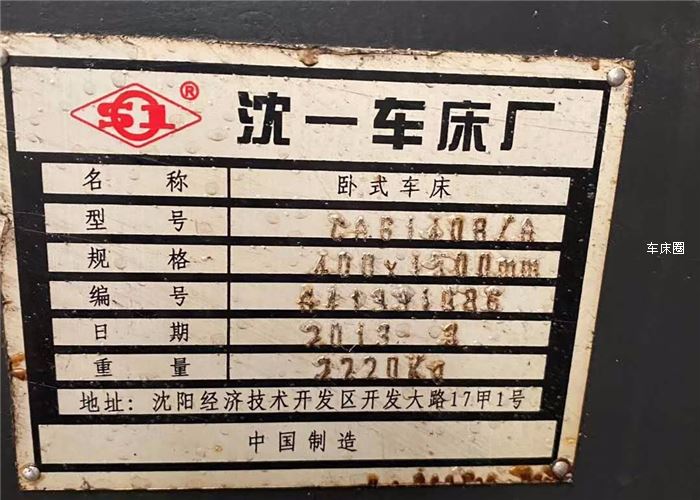 ® 沈一车床厂
名称 卧式车床
型号 CA6140B/A
规格 400x1500mm
编号
日期 2013
重量 2220Kg
地址: 沈阳经济技术开发区开发大路17甲1号
中国制造
车床圈